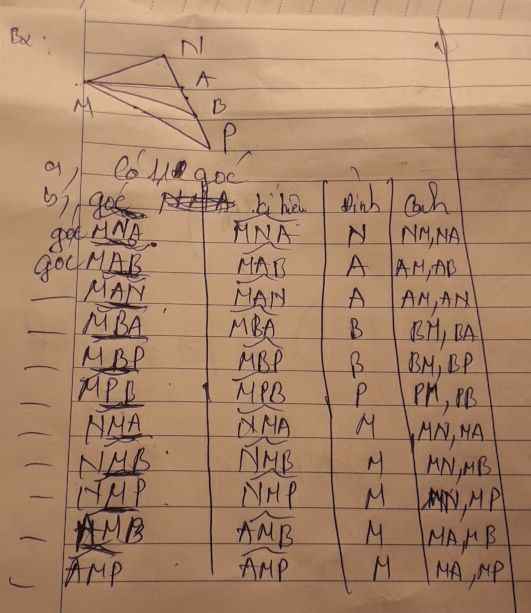 Bx:
N
A
M
B
P
a, Có 11 góc
b, góc kí hiệu Đỉnh Cạnh
góc MNA MNA N NM, NA
góc MAB MAB A AM, AB
— MAN MAN A AM, AN
— MBA MBA B BM, BA
— MBP MBP B BM, BP
— MPB MPB P PM, PB
— NMA NMA M MN, MA
— NMB NMB M MN, MB
— NMP NMP M MN, MP
— AMB AMB M MA, MB
AMP AMP M MA, MP